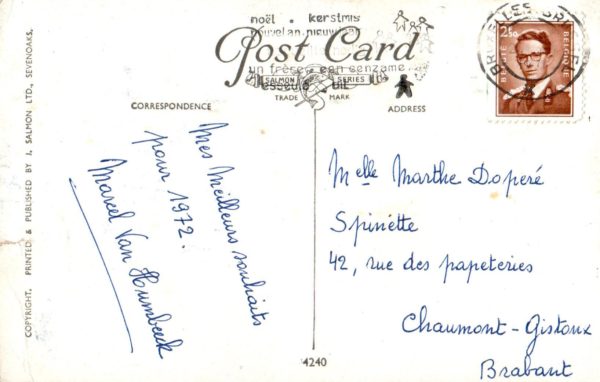 noël . kerstmis
nouvel an nieuwjaar
Post Card
un frère een
SALMON SERIES
TRADE MARK
CORRESPONDENCE
ADDRESS
2F50
BELGIE BELGIQUE
COPYRIGHT, PRINTED & PUBLISHED BY J. SALMON LTD., SEVENOAKS.
Mes Meilleurs souhaits
pour 1972.
Marcel Van Humbeeck
Melle Marthe Doperé
Spinette
42, rue des papeteries
Chaumont-Gistoux
Brabant
4240